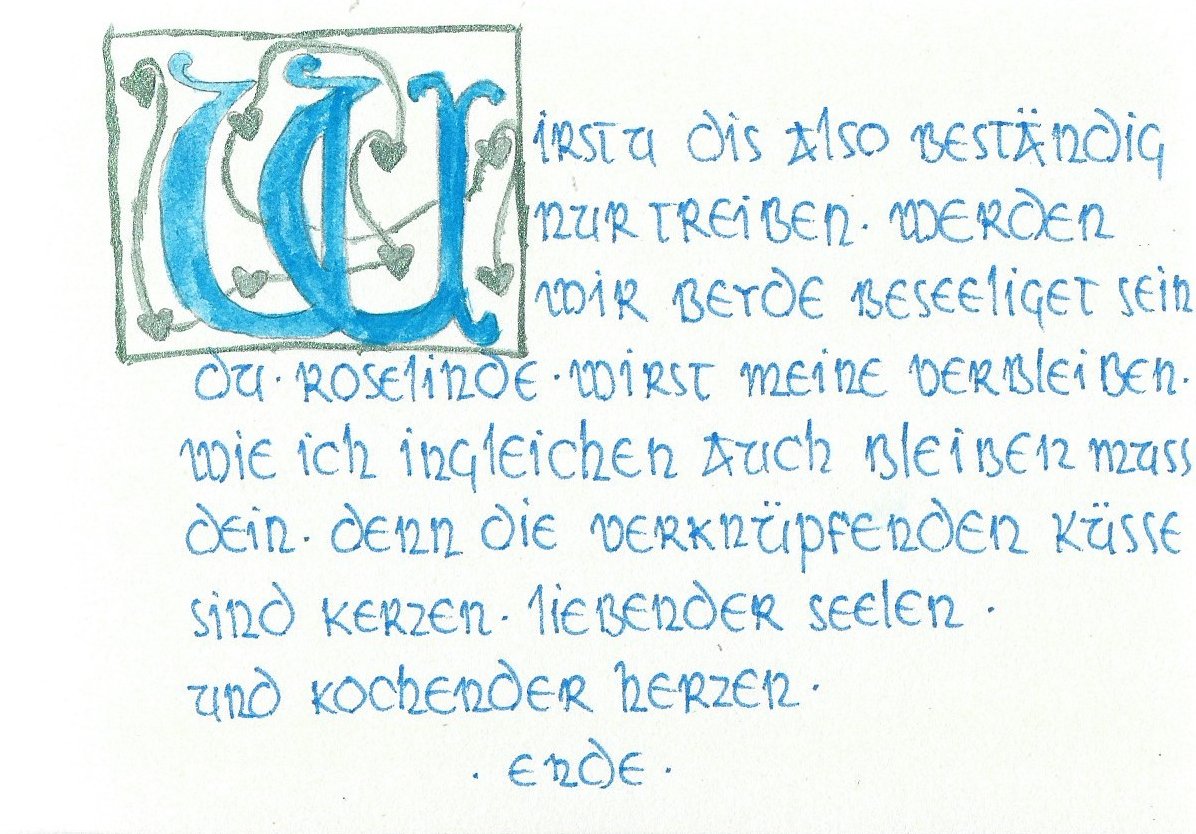 Wirstu dis also beständig
nur treiben. werden
wir beyde beseeliget sein
du. roselinde. wirst meine verbleiben.
wie ich ingleichen auch bleiben muss
dein. denn die verknüpfenden küsse
sind kerzen. liebender seelen.
und kochender herzen.
. ende.